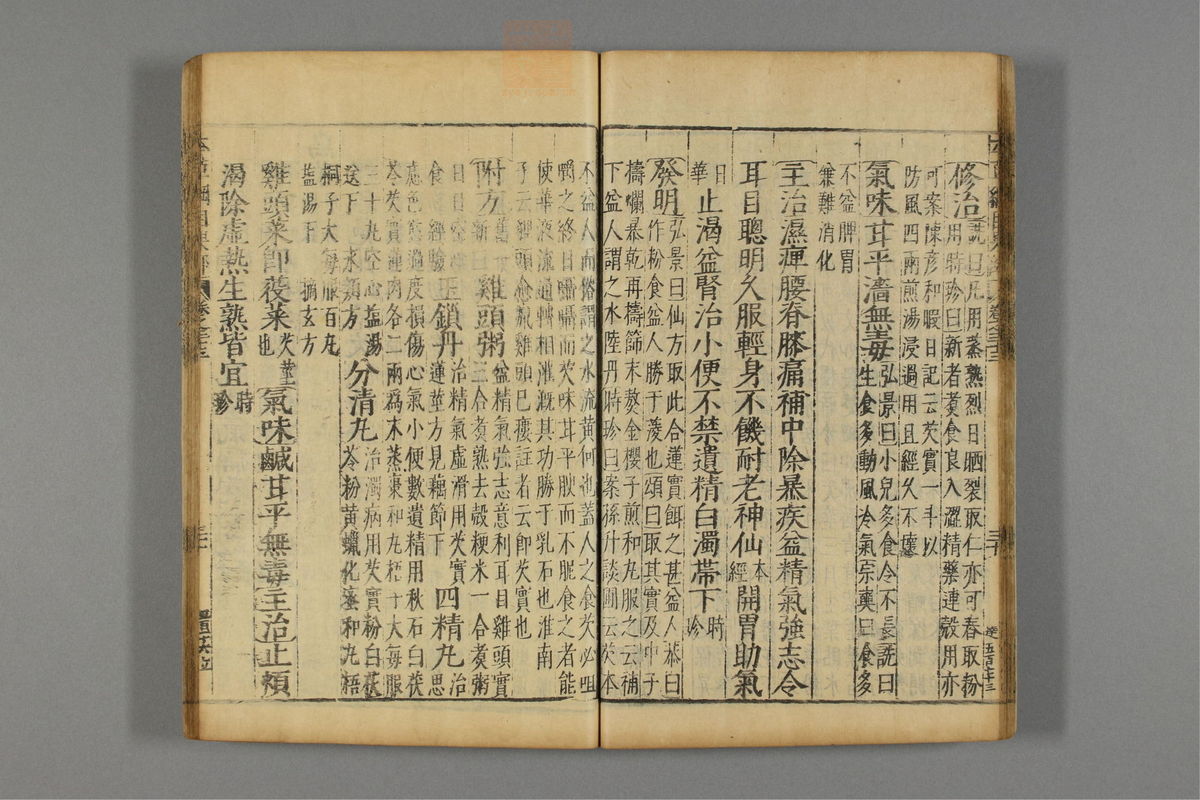 修治詵曰凡用蒸熟烈日晒裂取仁亦可舂取粉
用時珍曰新者煑食良入澀精藥連殼用亦
可案陳彦和暇日記云芡實一斗以
防風四兩煎湯浸過用且經久不壞
氣味甘平濇無毒弘景曰小兒多食令不長詵曰
生食多動風冷氣宗奭曰食多
不益脾胃
兼難消化
主治濕痺腰脊膝痛補中除暴疾益精氣強志令
耳目聰明久服輕身不饑耐老神仙本經開胃助氣
日華止渴益腎治小便不禁遺精白濁帶下時珍
發明弘景曰仙方取此合蓮實餌之甚益人恭曰
作粉食益人勝于菱也頌曰取其實及中子
擣爛暴乾再擣篩末熬金櫻子煎和丸服之云補
下益人謂之水陸丹時珍曰案孫升談圃云芡本
不益人而俗謂之水流黄何也蓋人之食芡必咀
嚼之終日囁囁而芡味甘平腴而不膩食之者能
使華液流通轉相灌漑其功勝于乳石也淮南
子云貍頭愈癙雞頭已瘻註者云即芡實也
附方舊一新三雞頭粥益精氣強志意利耳目雞頭實
三合煑熟去殼粳米一合煑粥
日日空心
食 經驗玉鎖丹治精氣虛滑用芡實
蓮莖方見藕節下四精丸治思
慮色慾過度損傷心氣小便數遺精用秋石白茯
苓芡實蓮肉各二兩爲末蒸棗和丸梧子大每服
三十丸空心盐湯
送下 永類方分清丸治濁病用芡實粉白茯
苓粉黄蠟化蜜和丸梧
桐子大每服百丸
盐湯下 摘玄方
雞頭菜即䓈菜芡莖也氣味鹹甘平無毒主治止煩
渴除虛熱生熟皆宜時珍